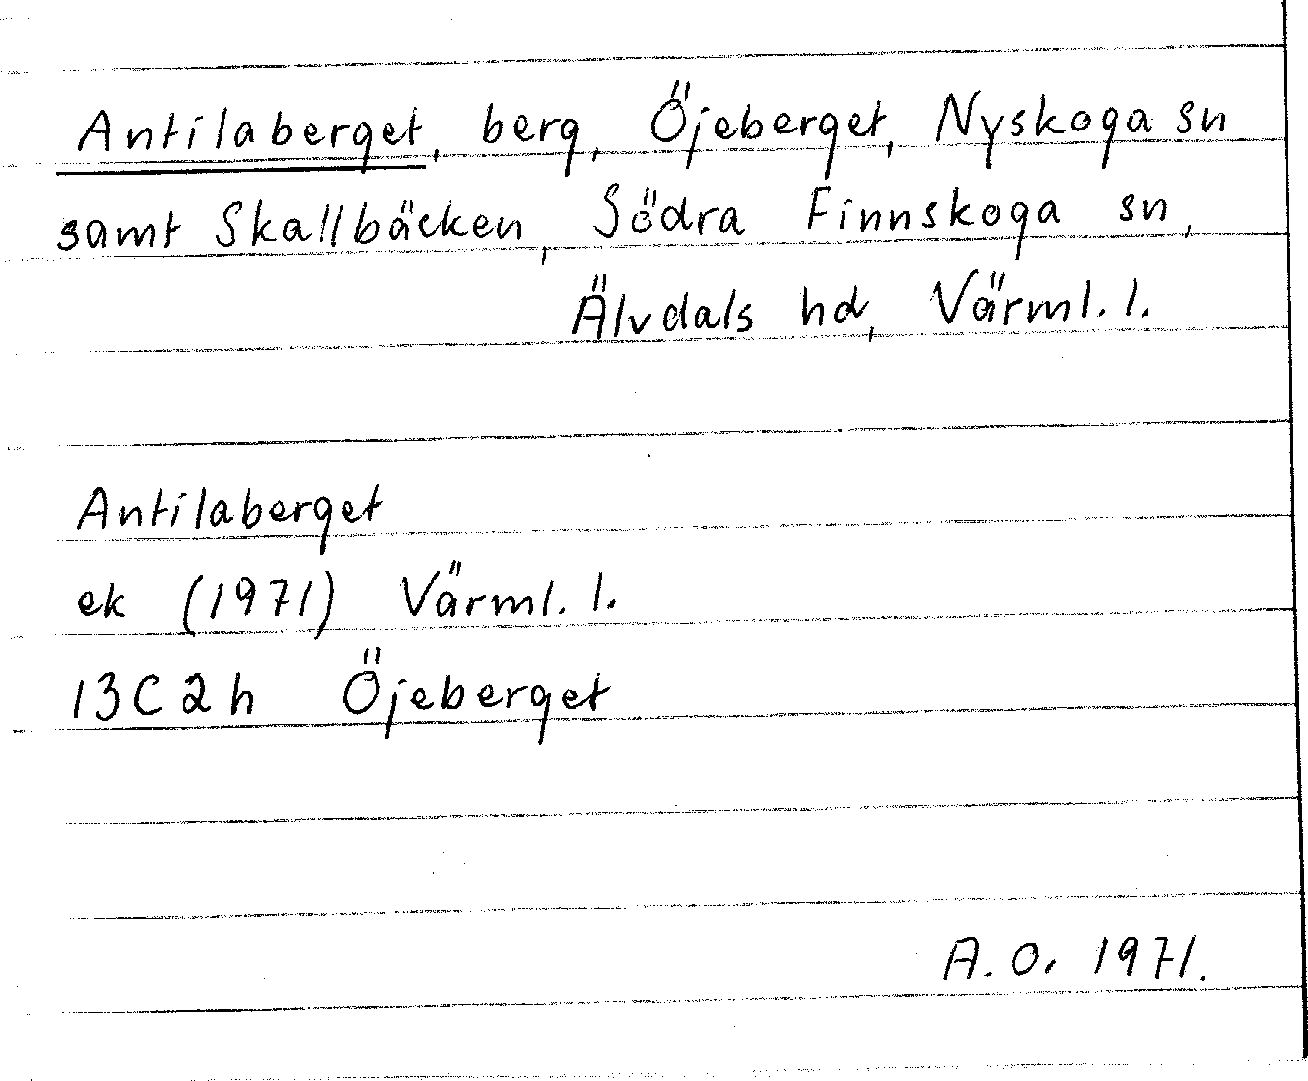 Antilaberget, berg, Öjeberget, Nyskoga sn
samt Skallbäcken, Södra Finnskoga sn,
Älvdals hd, Värml. l.
Antilaberget
ek (1971) Värml. l.
13C2h Öjeberget
A.O. 1971.